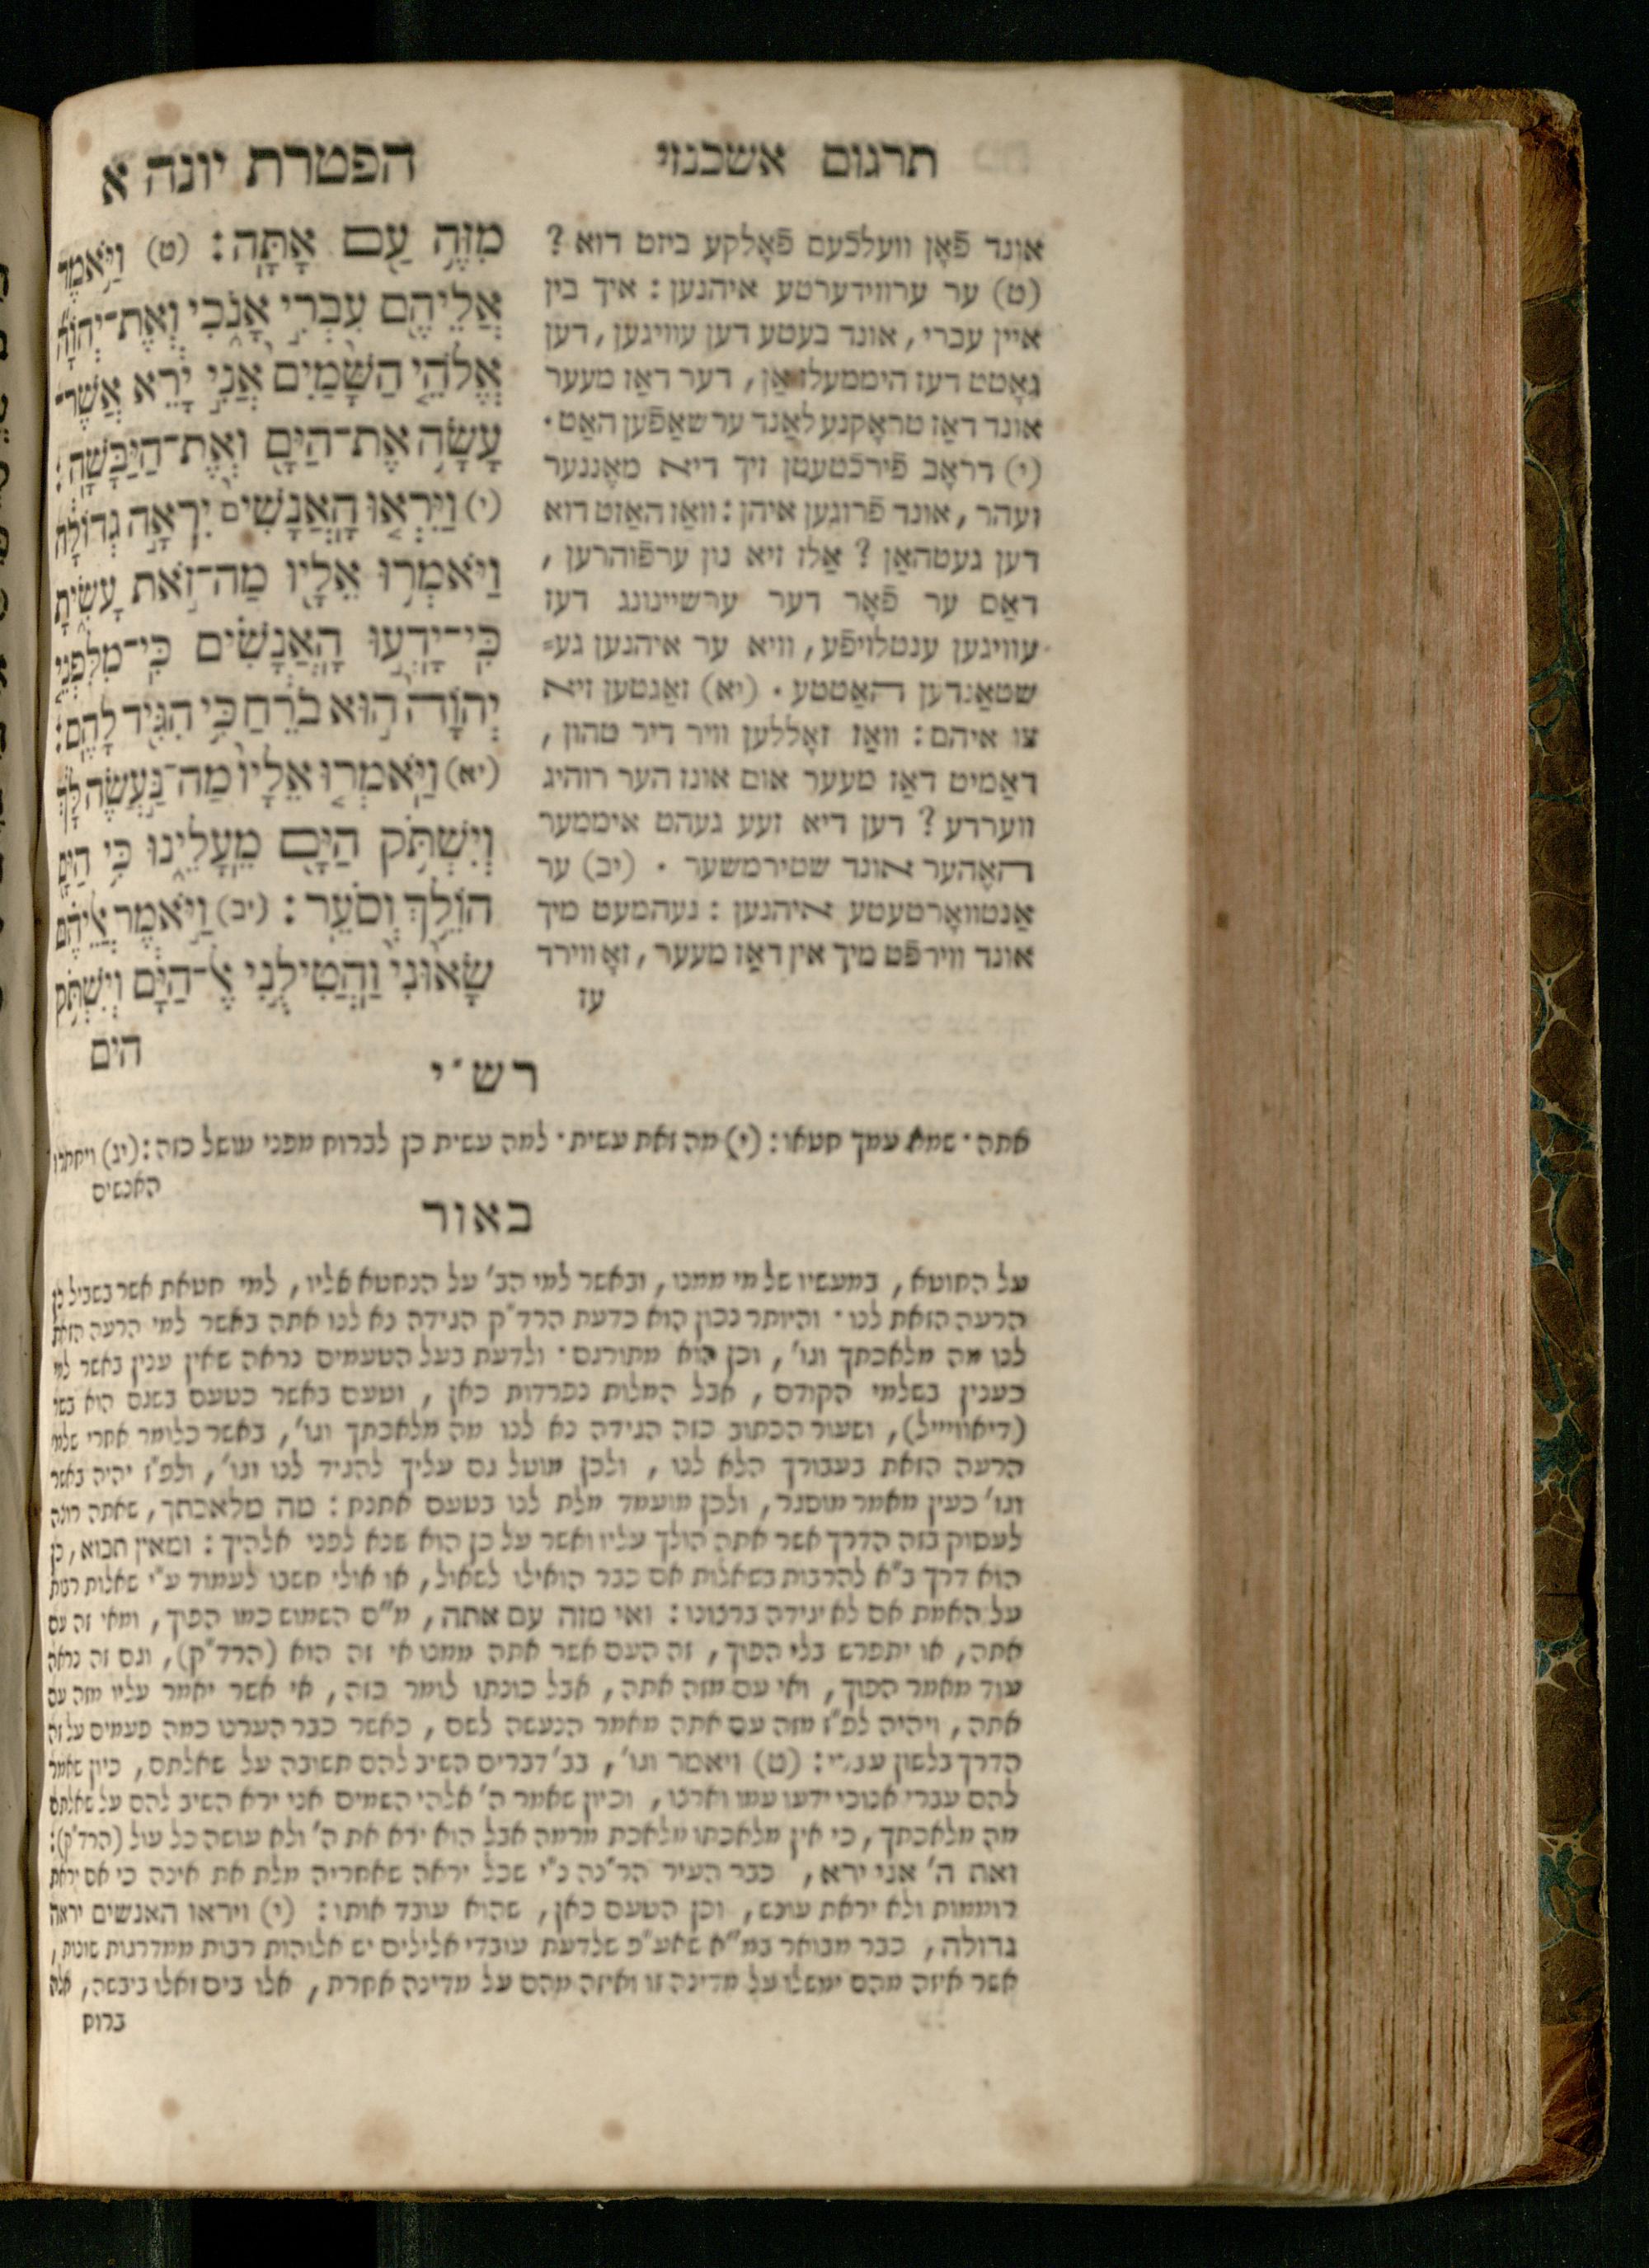 תרגום אשכנזי
הפטרת יונה א
אונד פֿאָן וועלכֿעם פֿאָלקע ביזט דוא ?
(ט) ער ערווידערטע איהנען : איך בין
איין עברי, אונד בעטע דען עוויגען, דען
גאָטט דעז היממעלז אַן, דער דאַז מעער
אונד דאַז טראָקנע לאַנד ערשאַפֿען האַט.
(י) דראָב פֿירכֿטעטן זיך דיא מאֶננער
זעהר, אונד פֿרוגען איהן : וואַז האַזט דוא
דען געטהאַן ? אַלז זיא נון ערפֿוהרען,
דאַס ער פֿאָר דער ערשיינונג דעז
עוויגען ענטלויפֿע, וויא ער איהנען גע=
שטאַנדען האַטטע. (יא) זאַגטען זיא
צו איהם : וואַז זאָללען וויר דיר טהון,
דאַמיט דאַז מעער אום אונז הער רוהיג
ווערדע ? דען דיא זעע געהט איממער
האֶהער אונד שטירמשער. (יב) ער
אַנטוואָרטעטע איהנען : נעהמעט מיך
אונד ווירפֿט מיך אין דאַז מעער, זאָ ווירד
עז
מִזֶּ֥ה עַ֖ם אָֽתָּה׃ (ט) וַיֹּ֥אמֶר
אֲלֵיהֶ֖ם עִבְרִ֣י אָנֹ֑כִי וְאֶת־יְהוָ֞ה
אֱלֹהֵ֤י הַשָּׁמַ֙יִם֙ אֲנִ֣י יָרֵ֔א אֲשֶׁר־
עָשָׂ֥ה אֶת־הַיָּ֖ם וְאֶת־הַיַּבָּשָֽׁה׃
(י) וַיִּֽירְא֤וּ הָֽאֲנָשִׁים֙ יִרְאָ֣ה גְדוֹלָ֔ה
וַיֹּאמְר֥וּ אֵלָ֖יו מַה־זֹּ֣את עָשִׂ֑יתָ
כִּֽי־יָדְע֣וּ הָאֲנָשִׁ֗ים כִּֽי־מִלִּפְנֵ֤י
יְהוָה֙ ה֣וּא בֹרֵ֔חַ כִּ֥י הִגִּ֖יד לָהֶֽם׃
(יא) וַיֹּאמְר֤וּ אֵלָיו֙ מַה־נַּ֣עֲשֶׂה לָּ֔ךְ
וְיִשְׁתֹּ֥ק הַיָּ֖ם מֵֽעָלֵ֑ינוּ כִּ֥י הַיָּ֖ם
הוֹלֵ֥ךְ וְסֹעֵֽר׃ (יב) וַיֹּ֣אמֶר אֲלֵיהֶ֗ם
שָׂא֙וּנִי֙ וַהֲטִילֻ֣נִי אֶל־הַיָּ֔ם וְיִשְׁתֹּ֥ק
הים
רש״י
אתה. שמא עמך חטאו : (י) מה זאת עשית. למה עשית כן לברוח מפני מושל כזה : (יג) ויחתרו
האנשים
באור
על החוטא, במעשיו של מי ממנו, ובאשר למי הב' על הנחטא אליו, למי חטאת אשר בשביל כן
הרעה הזאת לנו. והיותר נכון הוא כדעת הרד״ק הגידה נא לנו אתה באשר למי הרעה הזאת
לנו מה מלאכתך וגו', וכן הוא מתורגם. ולדעת בעל הטעמים נראה שאין ענין באשר למי
כענין בשלמי הקודם, אבל המלות נפרדות כאן, וטעם באשר כטעם בשגם הוא בשר
ושעור הכתוב כזה הגידה נא לנו מה מלאכתך וגו', באשר כלומר אחרי שלמי
הרעה הזאת בעבורך הלא לנו, ולכן מוטל גם עליך להגיד לנו וגו', ולפ״ז יהיה באשר
וגו' כעין מאמר מוסגר, ולכן מועמד מלת לנו בטעם אתנח : מה מלאכתך, שאתה רוצה
לעסוק בזה הדרך אשר אתה הולך עליו ואשר על כן הוא שנא לפני אלהיך : ומאין תבוא, כן
הוא דרך ב״א להרבות בשאלות אם כבר הואילו לשאול, או אולי חשבו לעמוד ע״י שאלות רבות
על האמת אם לא יגידה ברצונו : ואי מזה עם אתה, מ״ם השמוש כמו הפוך, ומאי זה עם
אתה, או יתפרש בלי הפוך, זה העם אשר אתה ממנו אי זה הוא (הרד״ק), וגם זה נראה
עוד מאמר הפוך, ואי עם מזה אתה, אבל כונתו לומר בזה, אי אשר יאמר עליו מזה עם
אתה, ויהיה לפ״ז מזה עם אתה מאמר הנעשה לשם, כאשר כבר הערנו כמה פעמים על זה
הדרך בלשון עברי : (ט) ויאמר וגו', בב' דברים השיב להם תשובה על שאלתם, כיון שאמר
להם עברי אנכי ידעו עמו וארצו, וכיון שאמר ה' אלהי השמים אני ירא השיב להם על שאלתם
מה מלאכתך, כי אין מלאכתו מלאכת מרמה אבל הוא ירא את ה' ולא עושה כל עול (הרד״ק) :
ואת ה' אני ירא, כבר העיר שכל יראה שאחריה מלת את אינה כי אם יראת
רוממות ולא יראת עונש, וכן הטעם כאן, שהוא עובד אותו : (י) וייראו האנשים יראה
גדולה, כבר מבואר במ״א שאע״פ שלדעת עובדי אלילים יש אלוהות רבות ממדרגות שונות,
אשר איזה מהם ימשלו על מדינה זו ואיזה מהם על מדינה אחרת, אלו בים ואלו ביבשה, אלה
ברוח